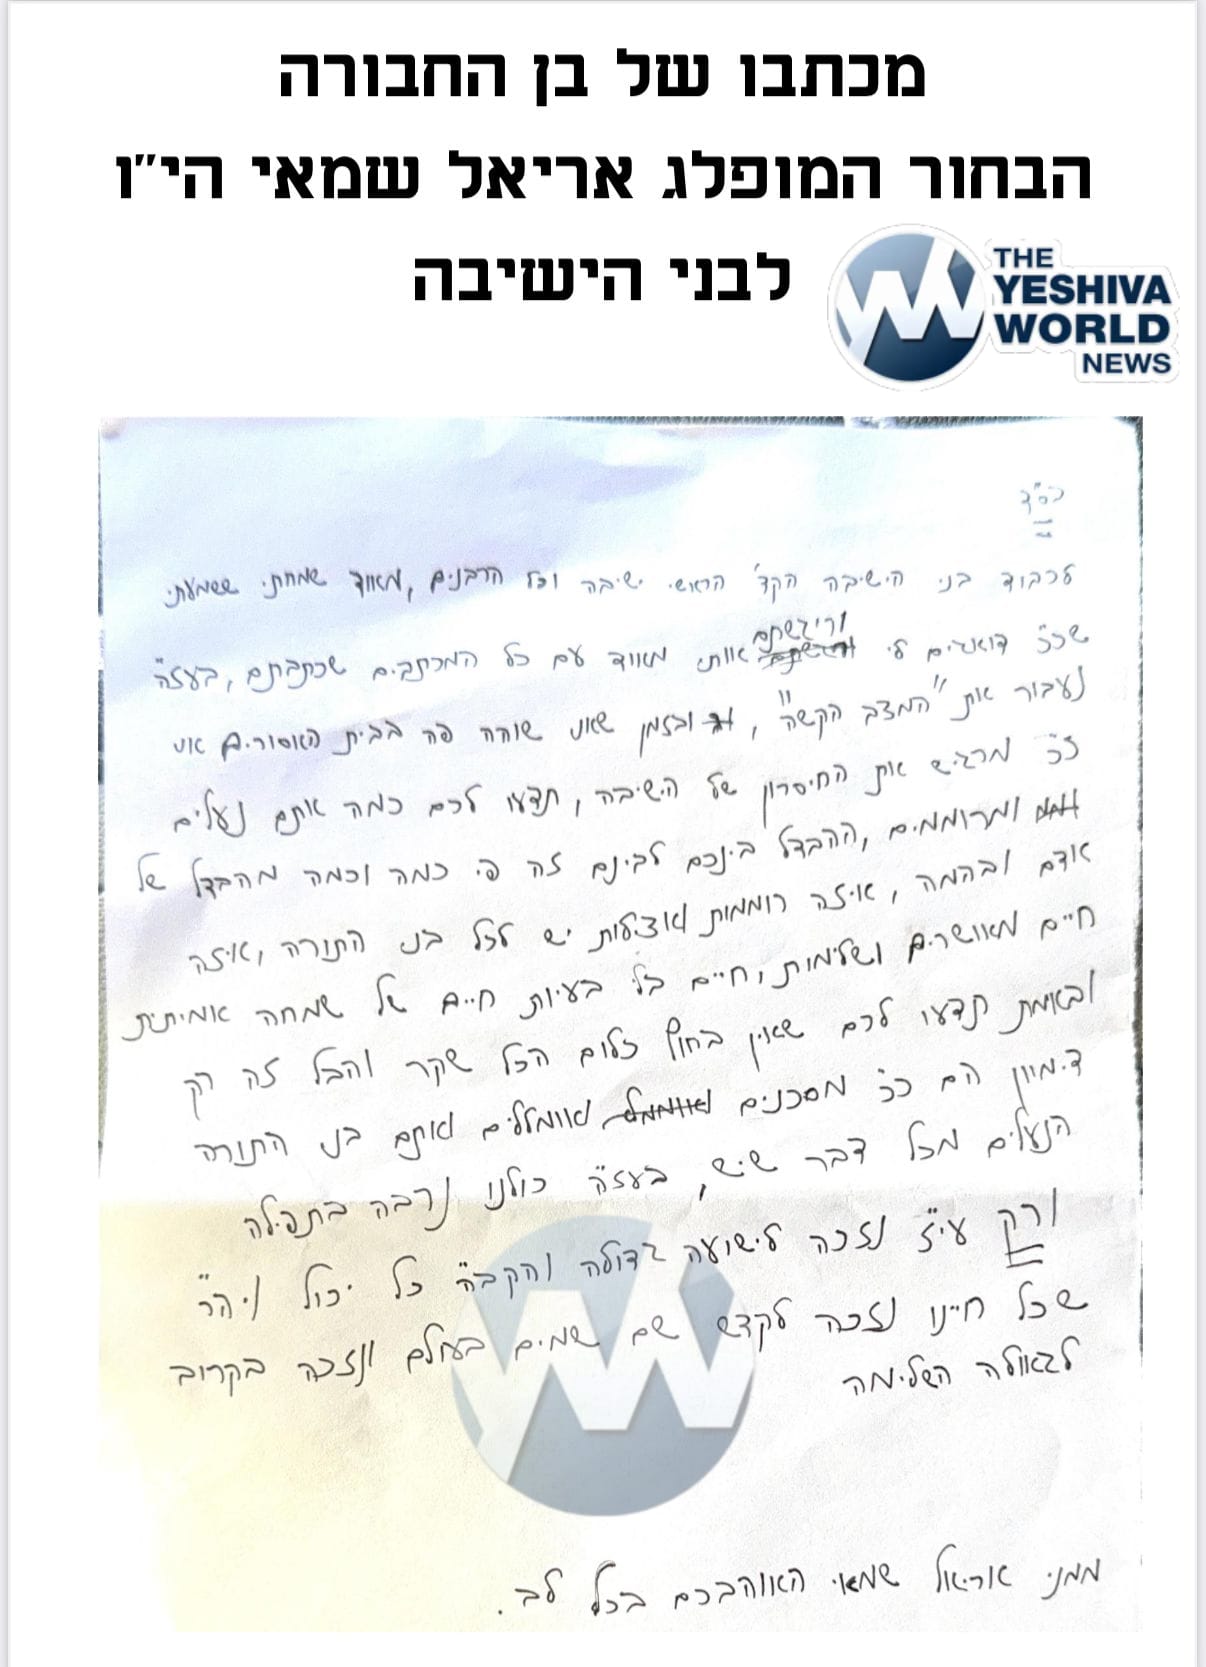 מכתבו של בן החבורה
הבחור המופלג אריאל שמאי הי"ו
לבני הישיבה
THE
YESHIVA
WORLD
NEWS
בס"ד
לכבוד בני הישיבה הקד' הראשי ישיבה וכל הרבנים, מאוד שמחתי ששמעתי
וריגשתם
שכ"כ דואגים לי אותי מאוד עם כל המכתבים שכתבתם, בעז"ה
נעבור את "המצב הקשה", ובזמן שאני שוהה פה בבית האסורים אני
כ"כ מרגיש את החיסרון של הישיבה, תדעו לכם כמה אתם נעלים
ומרוממים, ההבדל בינכם לבינם זה פי כמה וכמה מהבדל של
אדם ובהמה, איזה רוממות ואצילות יש לכל בני התורה, איזה
חיים מאושרים ושלימות, חיים בלי בעיות חיים של שמחה אמיתית
ובאמת תדעו לכם שאין בחוץ כלום הכל שקר והבל זה רק
דימיון הם כ"כ מסכנים ואומללים ואתם בני התורה
הנעלים מכל דבר שיש, בעז"ה כולנו נרבה בתפילה
ורק עי"ז נזכה לישועה גדולה והקב"ה כל יכול ויה"ר
שכל חיינו נזכה לקדש שם שמים בעולם ונזכה בקרוב
לגאולה השלימה
ממני אריאל שמאי האוהבכם בכל לב.